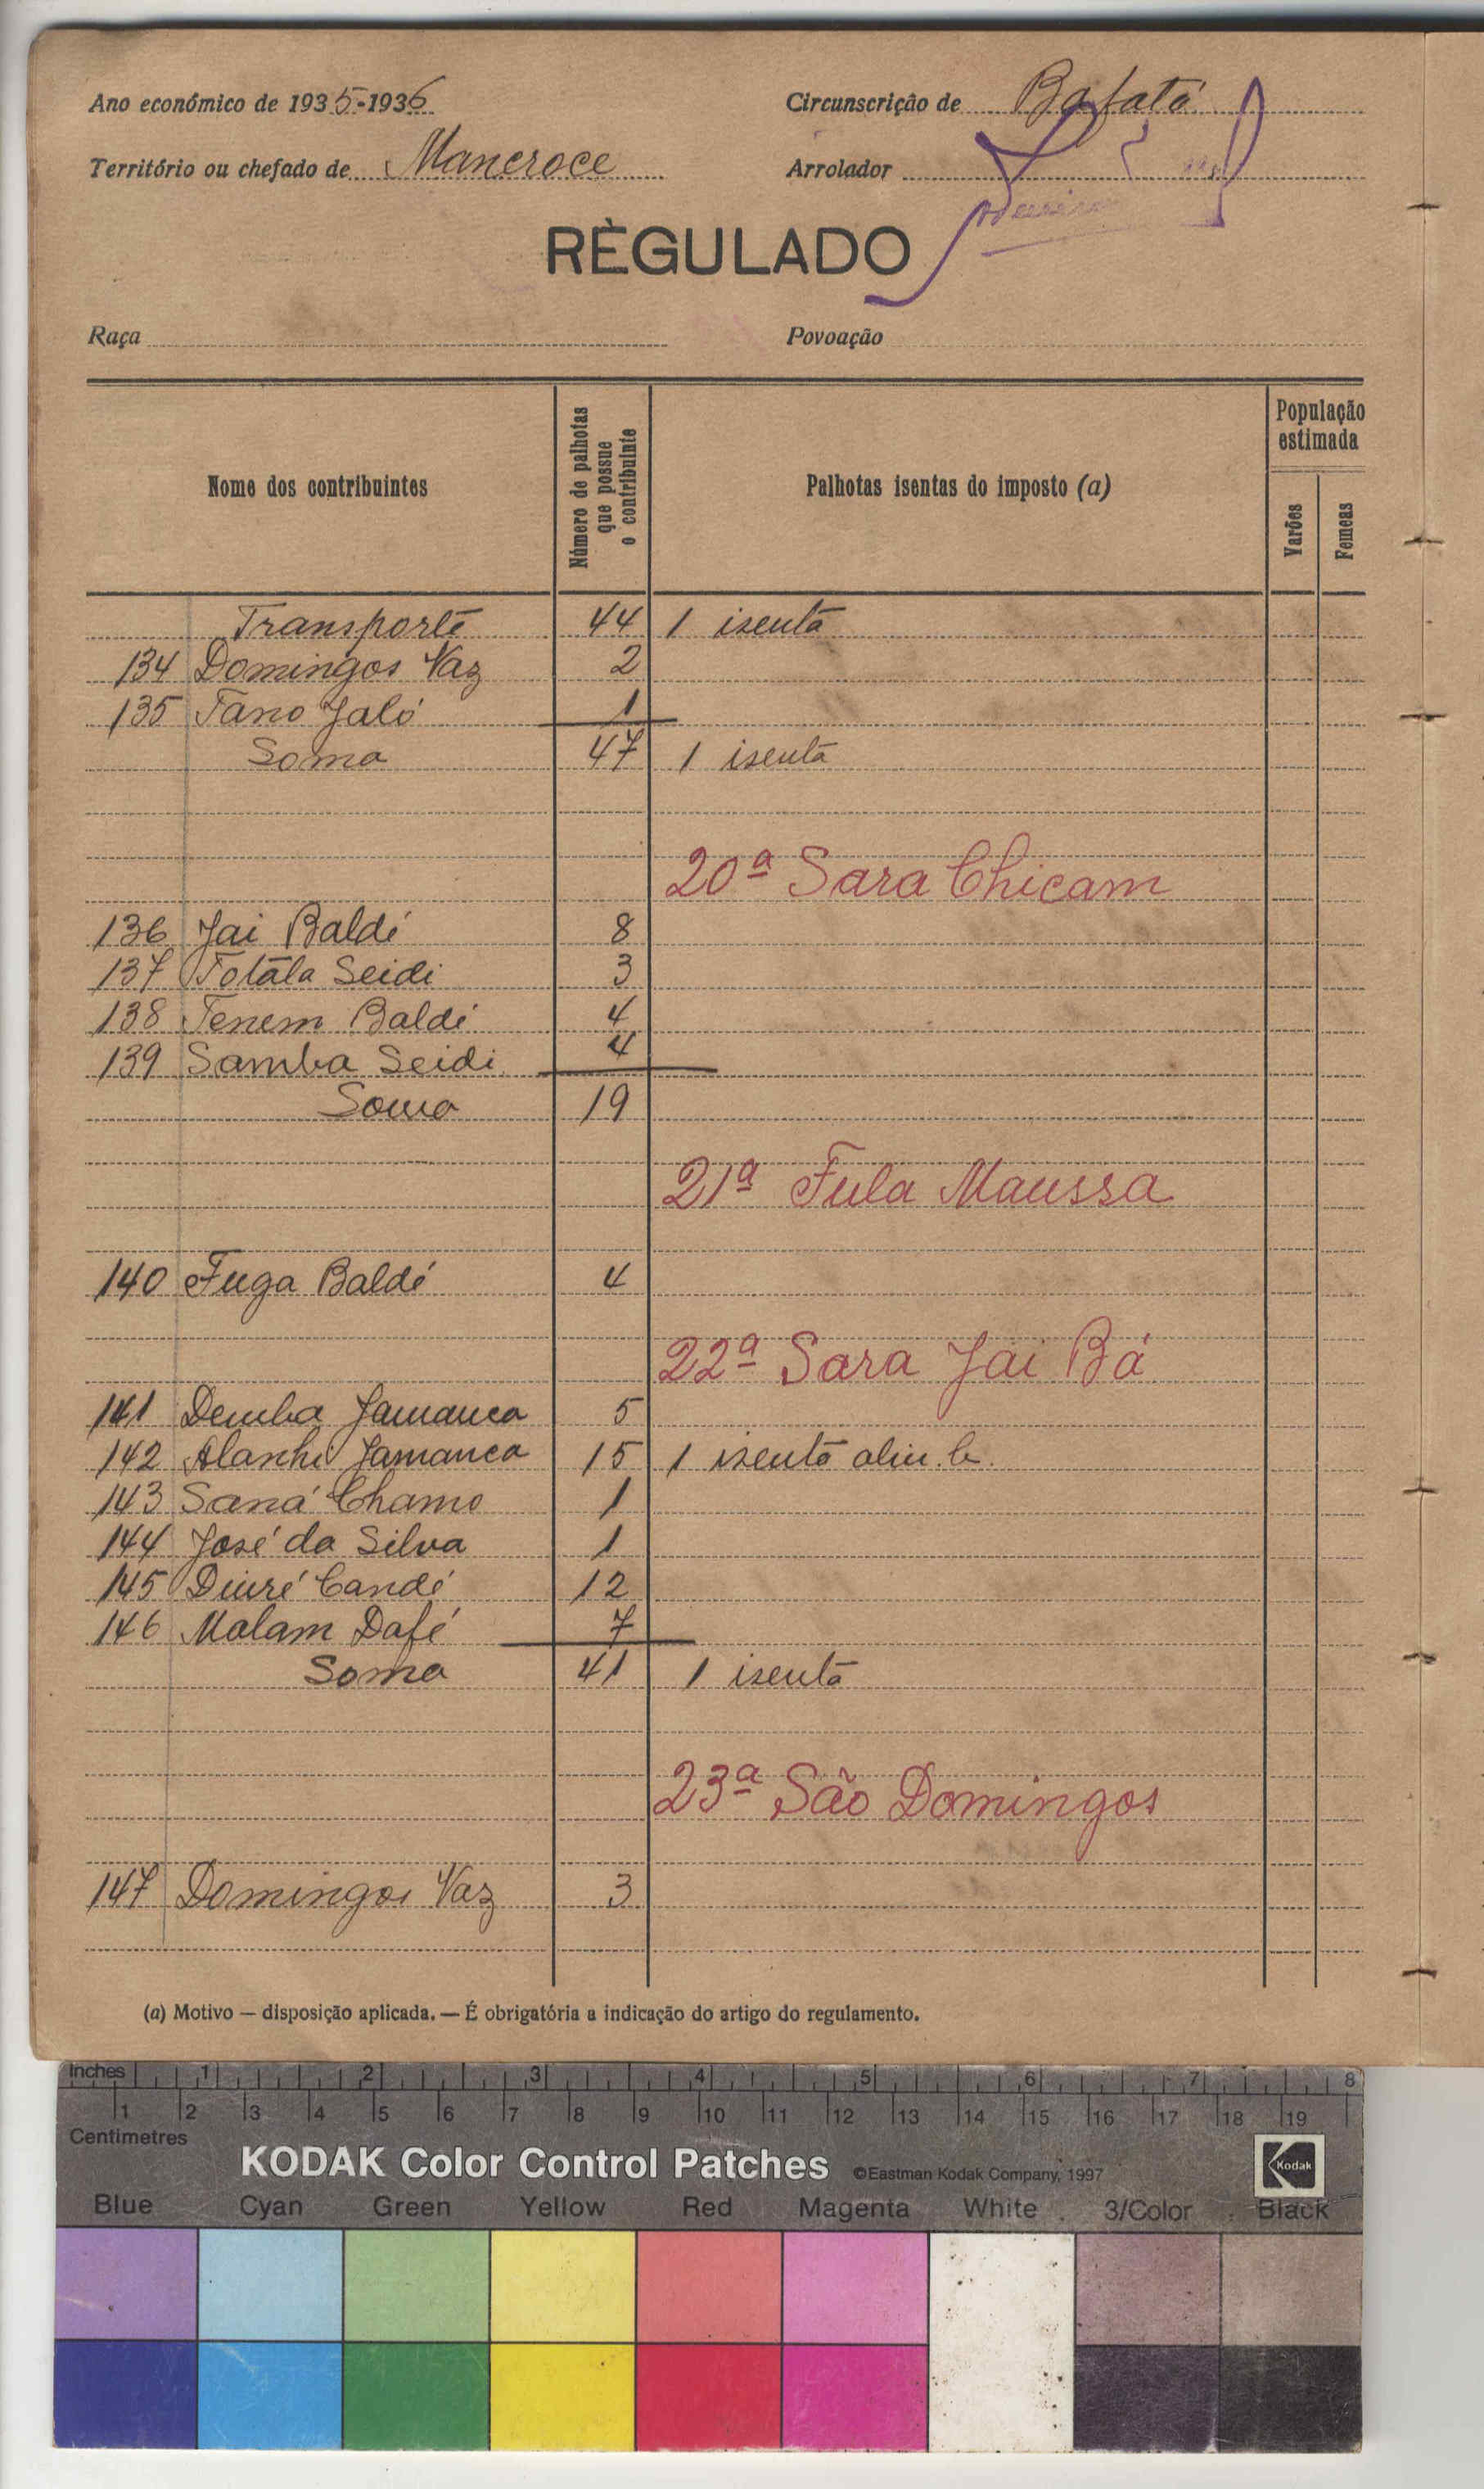 Ano económico de 1935-1936
Circunscrição de Bafatá
Território ou chefado de Mancroce
Arrolador
RÈGULADO
Raça
Povoação
Nome dos contribuintes
Número de palhotas que possue o contribuinte
Palhotas isentas do imposto (a)
População estimada
Varões
Femeas
Transporte 44 1 isenta
134 Domingos Vaz 2
135 Tano Jaló 1
Soma 47 1 isenta
20ª Sara Chicam
136 Jai Baldé 8
137 Totala Seidi 3
138 Tenem Baldé 4
139 Samba Seidi 4
Soma 19
21ª Fula Maussa
140 Fuga Baldé 4
22ª Sara Jai Bá
141 Demba Jamanca 5
142 Alanhi Jamanca 15 1 isenta alin. b.
143 Saná Chamo 1
144 José da Silva 1
145 Diuré Candé 12
146 Malam Dafé 7
Soma 41 1 isenta
23ª São Domingos
147 Domingos Vaz 3
(a) Motivo — disposição aplicada. — É obrigatória a indicação do artigo do regulamento.
Inches 1 2 3 4 5 6 7 8
1 2 3 4 5 6 7 8 9 10 11 12 13 14 15 16 17 18 19
Centimetres
KODAK Color Control Patches ©Eastman Kodak Company, 1997 Kodak
Blue Cyan Green Yellow Red Magenta White 3/Color Black